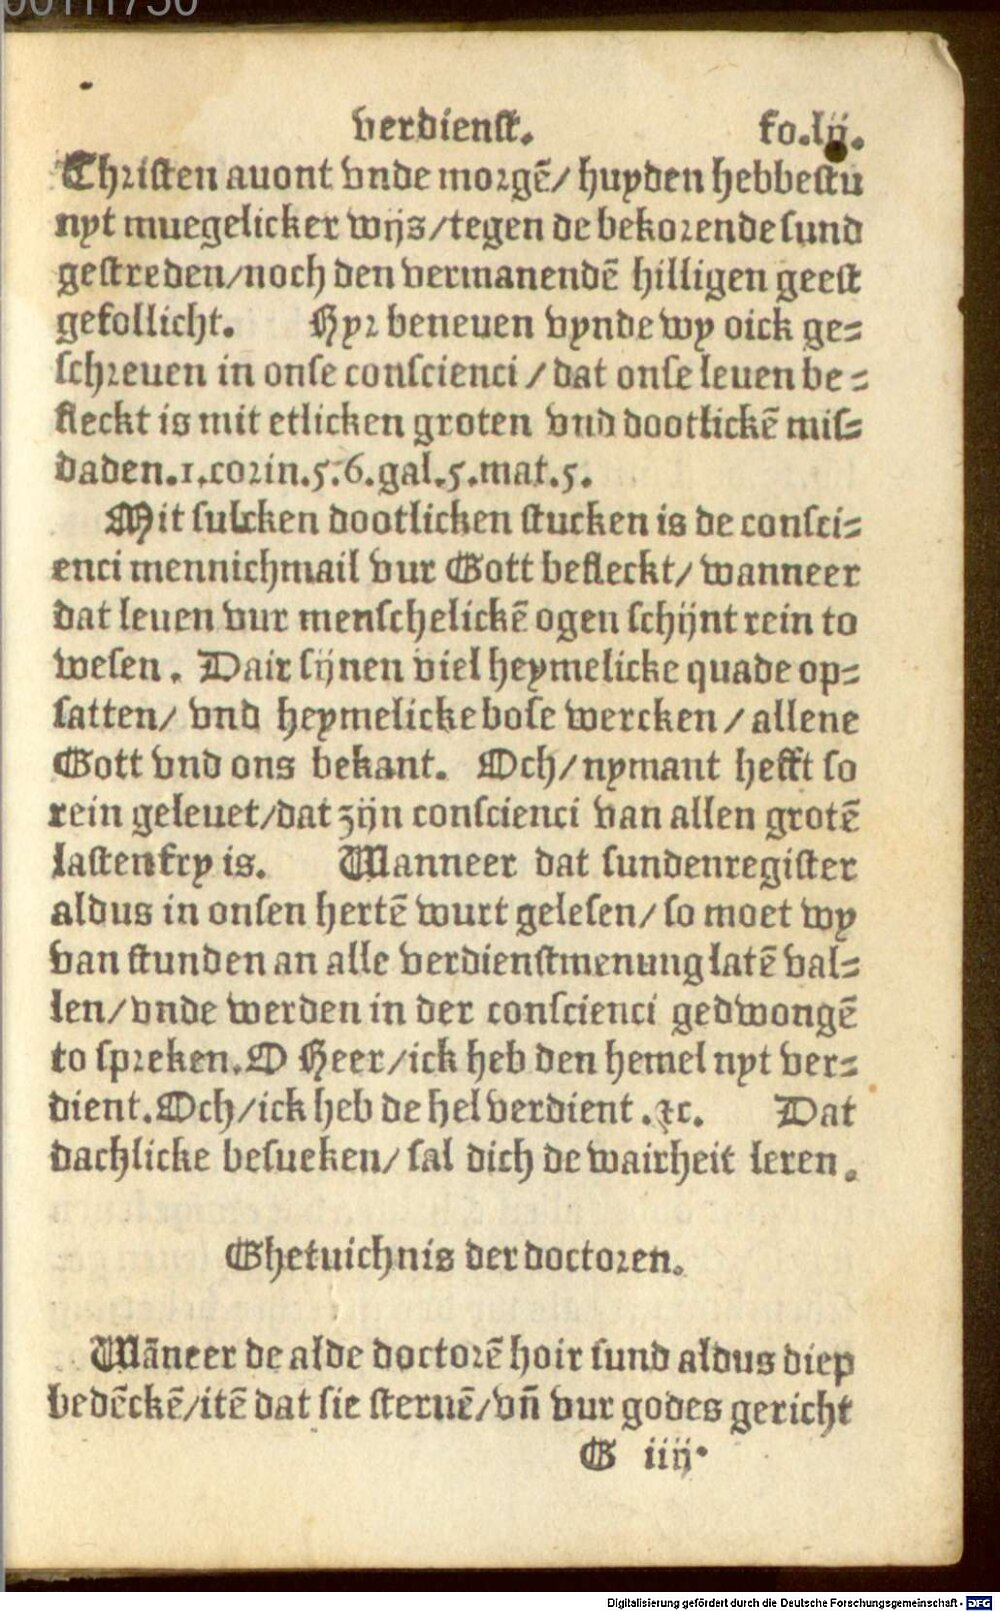 verdienst. fo.lij.
Christen auont vnde morgē/ huyden hebbestu
nyt muegelicker wijs/tegen de bekorende sund
gestreden/noch den vermanendē hilligen geest
gefollicht. Hyr beneuen vynde wy oick ge⸗
schreuen in onse conscienci / dat onse leuen be⸗
fleckt is mit etlicken groten vnd dootlickē mis⸗
daden.1.corin.5.6.gal.5.mat.5.
Mit sulcken dootlicken stucken is de consci⸗
enci mennichmail vur Gott befleckt/ wanneer
dat leuen vur menschelickē ogen schijnt rein to
wesen. Dair sijnen viel heymelicke quade op⸗
satten/ vnd heymelicke bose wercken / allene
Gott vnd ons bekant. Och/ nymant hefft so
rein geleuet/dat zijn conscienci van allen grotē
lasten fry is. Wanneer dat sundenregister
aldus in onsen hertē wurt gelesen/ so moet wy
van stunden an alle verdienstmenung latē val⸗
len/ vnde werden in der conscienci gedwongē
to spreken. O Heer/ick heb den hemel nyt ver⸗
dient. Och/ick heb de hel verdient .⁊c. Dat
dachlicke besueken/ sal dich de wairheit leren.
Ghetuichnis der doctoren.
Wāneer de alde doctorē hoir sund aldus diep
bedēckē/itē dat sie steruē/vn̄ vur godes gericht
G iiij.
Digitalisierung gefördert durch die Deutsche Forschungsgemeinschaft - DFG